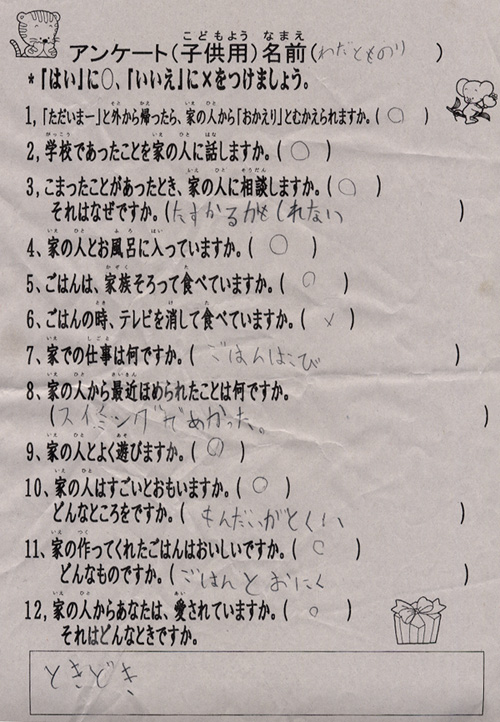 アンケート(子供用)名前(わだとものり)
*「はい」に○、「いいえ」に×をつけましょう。
1,「ただいまー」と外から帰ったら、家の人から「おかえり」とむかえられますか。(○)
2,学校であったことを家の人に話しますか。(○)
3,こまったことがあったとき、家の人に相談しますか。(○)
それはなぜですか。(たすかるかもしれない)
4、家の人とお風呂に入っていますか。(○)
5、ごはんは、家族そろって食べていますか。(○)
6、ごはんの時、テレビを消して食べていますか。(×)
7、家での仕事は何ですか。(ごはんはこび)
8、家の人から最近ほめられたことは何ですか。
(スイミングで かった。)
9、家の人とよく遊びますか。(○)
10、家の人はすごいとおもいますか。(○)
どんなところをですか。(もんだいがとくい)
11、家の作ってくれたごはんはおいしいですか。(○)
どんなものですか。(ごはんとおにく)
12,家の人からあなたは、愛されていますか。(○)
それはどんなときですか。
ときどき